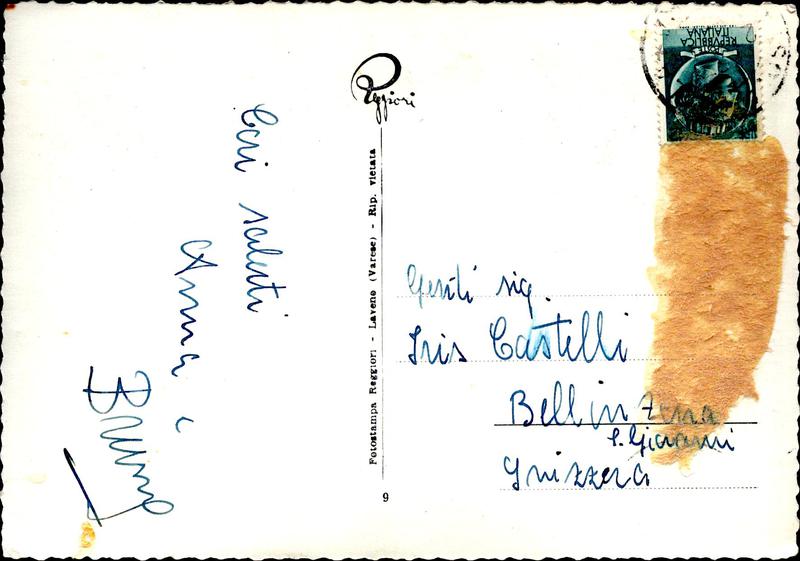 Cari saluti
Anna e
Bruno
Reggiori
Fotostampa Reggiori - Laveno (Varese) - Rip. vietata
9
POSTE
REPVBBLICA
ITALIANA
Gentil sig.
Iris Castelli
Bellinzona
S. Giovanni
Svizzera